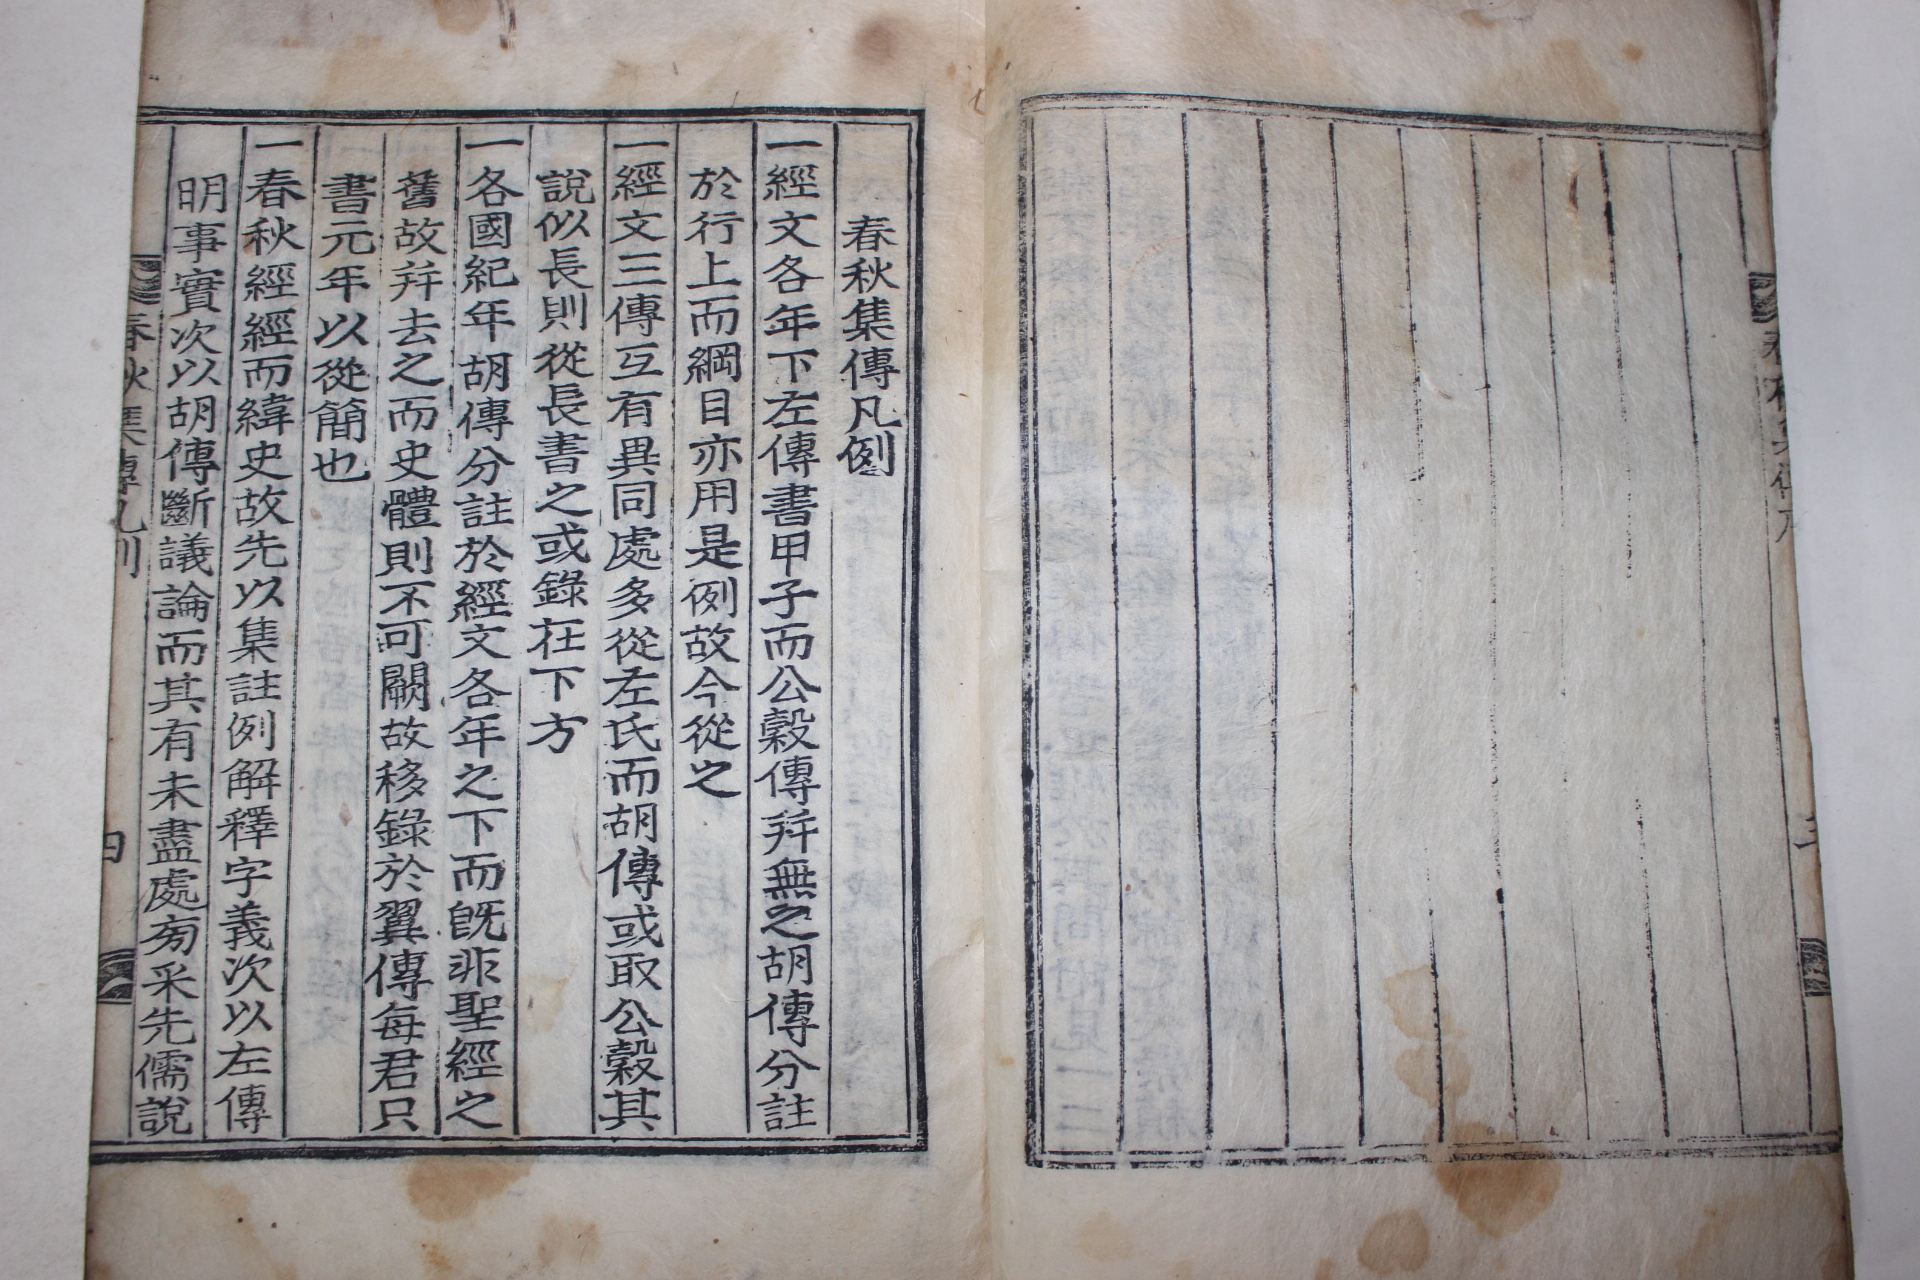 春秋集傳凡例
一經文各年下左傳書甲子而公穀傳幷無之胡傳分註
於行上而綱目亦用是例故今從之
一經文三傳互有異同處多從左氏而胡傳或取公穀其
說似長則從長書之或錄在下方
一各國紀年胡傳分註於經文各年之下而旣非聖經之
舊故幷去之而史體則不可闕故移錄於翼傳每君只
書元年以從簡也
一春秋經經而緯史故先以集註例解釋字義次以左傳
明事實次以胡傳斷議論而其有未盡處旁采先儒說
春秋集傳凡例
四